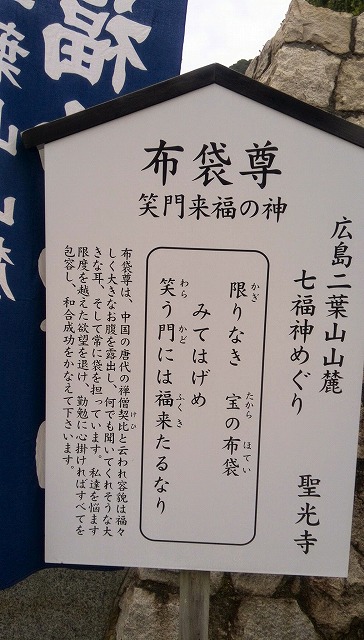 布袋尊
笑門来福の神
広島二葉山山麓
七福神めぐり
聖光寺
限りなき 宝の布袋
かぎ たから ほてい
みてはげめ
笑う門には福来たるなり
わら かど ふくき
布袋尊は、中国の唐代の禅僧契比と云われ容貌は福々
けひ
しく大きなお腹を露出し、何でも聞いてくれそうな大
きな耳、そして常に袋を担っています。私達を悩ます
限度を越えた欲望を退け、勤勉に心掛ければすべてを
包容し、和合成功をかなえて下さいます。
福
二葉山山麓